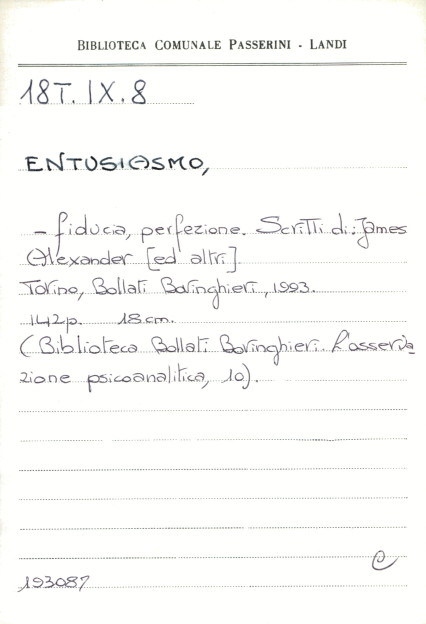 BIBLIOTECA COMUNALE PASSERINI - LANDI
18T.IX.8
ENTUSIASMO,
- fiducia, perfezione. Scritti di: James
Alexander [ed altri].
Torino, Bollati Boringhieri, 1993.
142p. 18cm.
(Biblioteca Bollati Boringhieri. L'osserva
zione psicoanalitica, 10).
C
193087